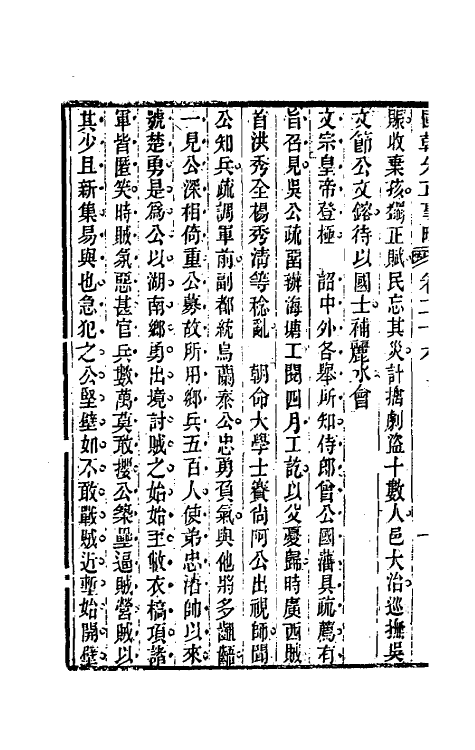 國朝先正事略 卷二十六
賑收棄孩蠲正賦民忘其災計擒劇盜十數人邑大治巡撫吳
文節公文鎔待以國士補麗水會
文宗皇帝登極 詔中外各舉所知侍郎曾公國藩具疏薦有
旨召見吳公疏留辦海塘工閱四月工訖以父憂歸時廣西賊
首洪秀全楊秀淸等稔亂 朝命大學士賽尚阿公出視師聞
公知兵疏調軍前副都統烏蘭泰公忠勇負氣與他將多齟齬
一見公深相倚重公募故所用鄉兵五百人使弟忠濬帥以來
號楚勇是爲公以湖南鄉勇出境討賊之始始至敝衣槁項諸
軍皆匿笑時賊氛惡甚官兵數萬莫敢攖公築壘逼賊營賊以
其少且新集易與也急犯之公堅壁如不敢戰賊近塹始開壁